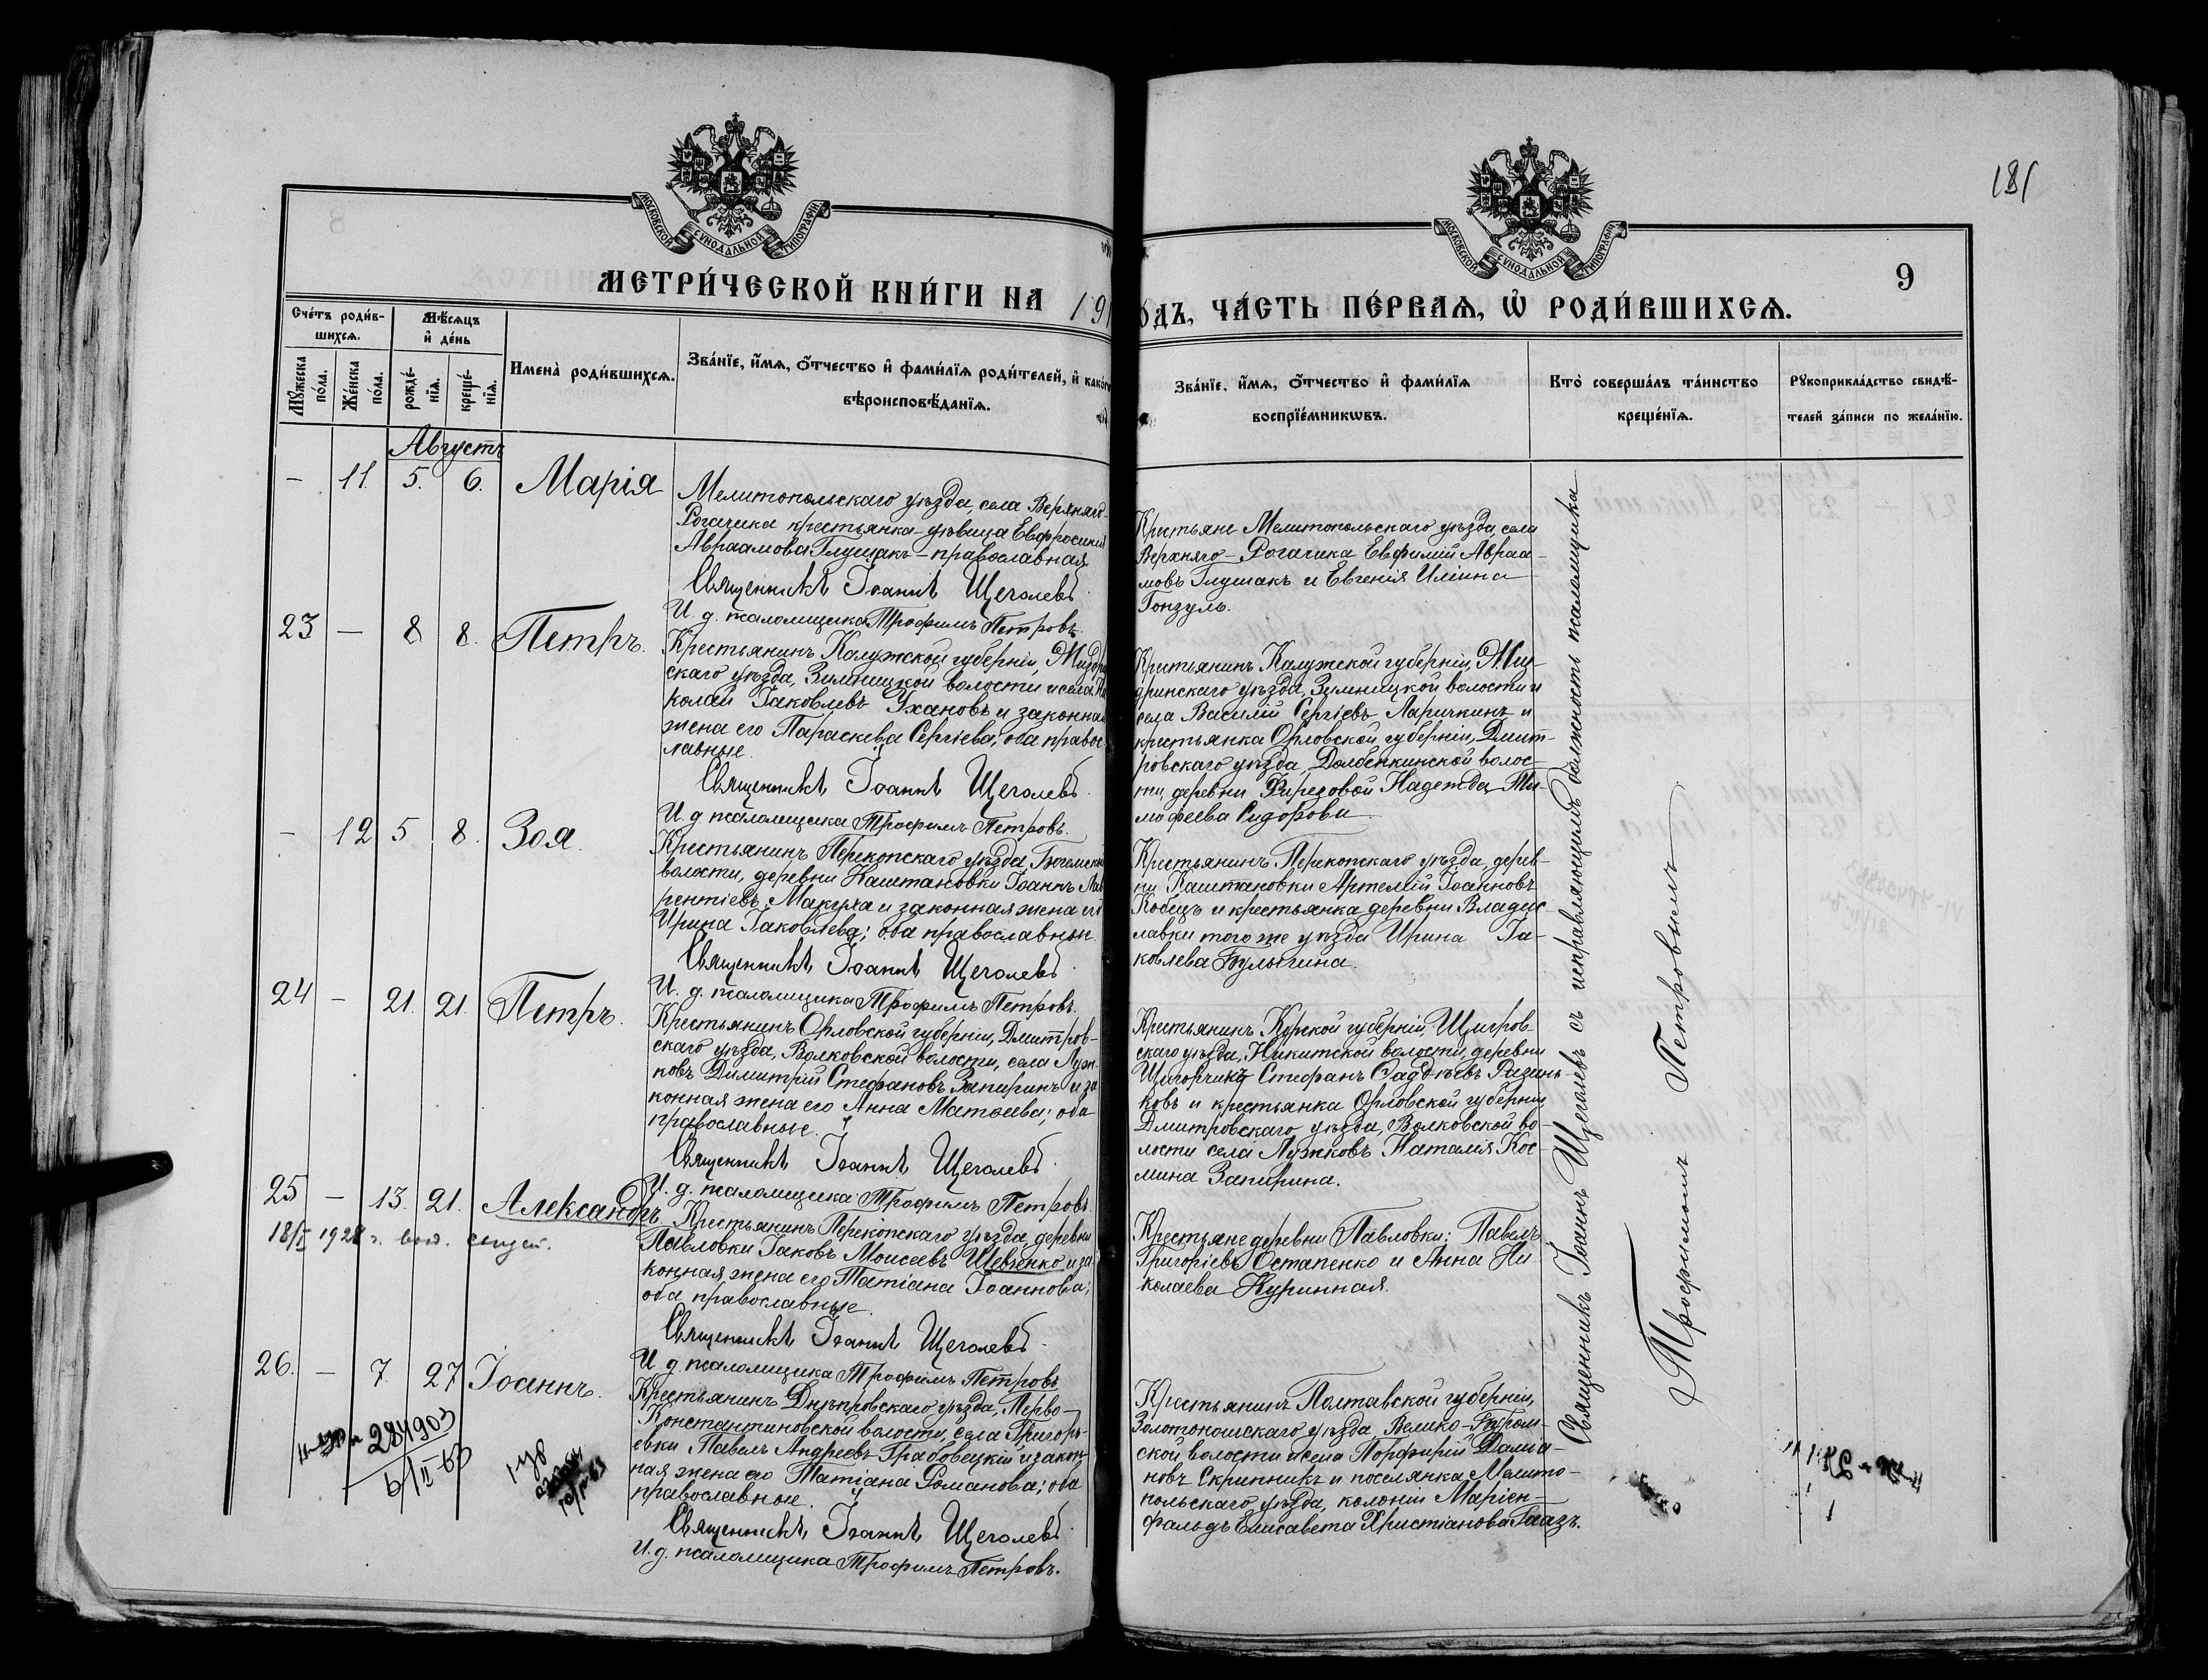 181
МОСКОВСКОЙ СѴНОДАЛЬНОЙ ТИПОГРАФИИ
МОСКОВСКОЙ СѴНОДАЛЬНОЙ ТИПОГРАФИИ
МЕТРИ́ЧЕСКОЙ КНИ́ГИ НА 191
ОДЪ, ЧА́СТЬ ПЕ́РВАѦ, Ѡ РОДИ́ВШИХСѦ.
9
Сче́тъ роди́в-
шихсѧ.
Мꙋ́жеска
по́ла.
Же́нска
по́ла.
Мѣ́сѧцъ
и̂ де́нь
рожде́-
нїѧ.
креще́-
нїѧ.
Имена̀ роди́вшихсѧ.
Зва́нїе, и҆́мѧ, ѻ҆́тчество и҆ фами́лїѧ роди́телей, и҆ како́г
вѣроисповѣ́данїѧ.
Зва́нїе, и҆́мѧ, ѻ҆́тчество и҆ фами́лїѧ
воспрїе́мникѡвъ.
Кто̀ соверша́лъ та́инство
креще́нїѧ.
Рꙋкоприкла́дство свидѣ́-
телей за́писи по жела́нїю.
Августъ
– 11. 5. 6. Марія
Мелитопольскаго уѣзда, села Верхняго-
Рогачика крестьянка-дѣвица Евфросинія
Авраамова Глушакъ – православная
Священникъ Іоаннъ Щеголевъ.
И. д. псаломщика Трофимъ Петровъ.
Крестьяне Мелитопольскаго уѣзда, села
Верхняго-Рогачика Евфимій Авраа-
мовъ Глушакъ и Евгенія Иліина
Гонзуль.
23 – 8 8. Петръ.
Крестьянинъ Калужской губерніи, Жиздрин
скаго уѣзда, Зимницкой волости и села Ни
колай Іаковлевъ Ухановъ и законная
жена его Параскева Сергіева; оба правос
лавные.
Священникъ Іоаннъ Щеголевъ.
И. д. псаломщика Трофимъ Петровъ.
Крестьянинъ Калужской губерніи, Жиз-
дринскаго уѣзда, Зимницкой волости и
села Василій Сергіевъ Ларичкинъ и
крестьянка Орловской губерніи, Дмит-
ровскаго уѣзда, Долбенкинской волос-
ти, деревни Фирезовой Надежда Ти-
мофеева Сидорова
– 12 5 8. Зоя.
Крестьянинъ Перекопскаго уѣзда, Богемской
волости, деревни Каштановки Іоаннъ Лав
рентіевъ Макуха и законная жена его
Ирина Іаковлева; оба православные.
Священникъ Іоаннъ Щеголевъ.
И. д. псаломщика Трофимъ Петровъ.
Крестьянинъ Перекопскаго уѣзда, дерев-
ни Каштановки Артемій Іоанновъ
Кобецъ и крестьянка деревни Владис-
лавки того же уѣзда Ирина Іа-
ковлева Булыгина.
24 – 21. 21. Петръ.
Крестьянинъ Орловской губерніи, Дмитров-
скаго уѣзда, Волковской волости, села Луж-
ковъ Димитрій Стефановъ Запиринъ и за
конная жена его Анна Матѳеева; оба
православные.
Священникъ Іоаннъ Щеголевъ.
И. д. псаломщика Трофимъ Петровъ.
Крестьянинъ Курской губерніи, Щигров-
скаго уѣзда, Никитской волости, деревни
Щигорчикъ Стефанъ Ѳаддѣевъ Разинь-
ковъ и крестьянка Орловской губерніи
Дмитровскаго уѣзда, Волковской во-
лости села Лужковъ Наталія Кос-
мина Запирина.
25 – 13. 21. Александръ
18/I 1928 г. выд.
Крестьянинъ Перекопскаго уѣзда, деревни
Павловки Іаковъ Моисеевъ Шевченко и за
конная жена его Татіана Іоаннова;
оба православные.
Священникъ Іоаннъ Щеголевъ.
И. д. псаломщика Трофимъ Петровъ
Крестьяне деревни Павловки: Павелъ
Григоріевъ Остапенко и Анна Ни-
колаева Куринная.
26. – 7. 27 Іоаннъ.
Крестьянинъ Днѣпровскаго уѣзда, Перво-
Константиновской волости, села Григорь-
евки Павелъ Андреевъ Грабовецкій и закон
ная жена его Татіана Романова; оба
православные.
Священникъ Іоаннъ Щеголевъ.
И. д. псаломщика Трофимъ Петровъ.
Крестьянинъ Полтавской губерніи,
Золотоношскаго уѣзда, Велико-Буром-
ской волости и села Порфирій Даміа-
новъ Скрипникъ и поселянка Мелито-
польскаго уѣзда, колоніи Маріен-
фальдъ Елисавета Христіанова Гаазъ.
284903
Священникъ Іоаннъ Щеголевъ съ исправляющимъ должность псаломщика
Трофимомъ Петровымъ